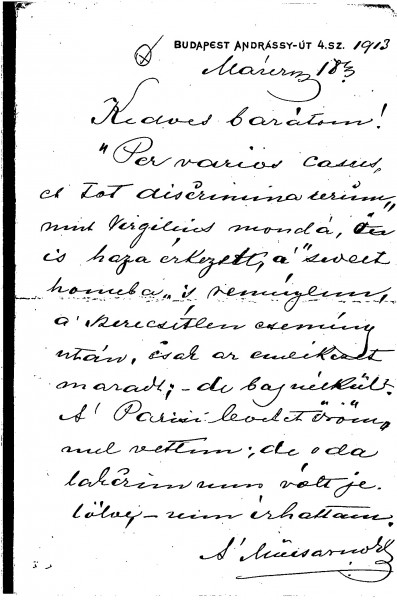 BUDAPEST ANDRÁSSY-ÚT 4.SZ. 1913
Márczius 18
Kedves barátom!
"Per varios casus,
et tot discrimina rerum"
mint Virgilius mondá, ön
is haza érkezett, a' "sweet
homeba" 's reménylem,
a' szerencsétlen esemény
után, csak az emlékezet
maradt; – de baj nélkül.
A' Parisi levelet öröm„
mel vettem; de oda
lakcrim nem vólt je„
lölve, – nem írhattam.
A' Műcsarnok